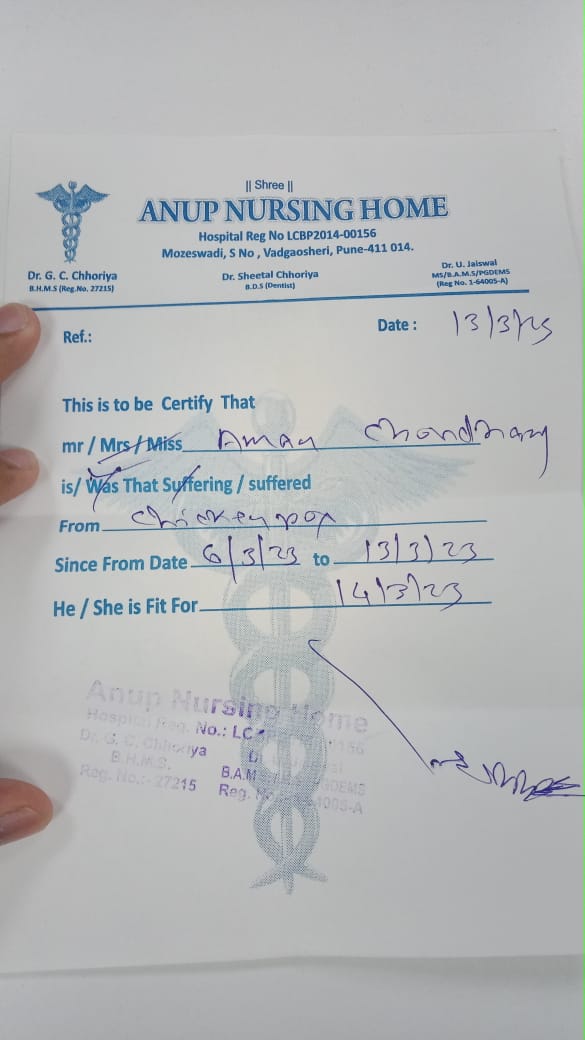 || Shree ||
ANUP NURSING HOME
Hospital Reg No LCBP2014-00156
Mozeswadi, S No , Vadgaosheri, Pune-411 014.
Dr. G. C. Chhoriya
B.H.M.S (Reg.No. 27215)
Dr. Sheetal Chhoriya
B.D.S (Dentist)
Dr. U. Jaiswal
MS/B.A.M.S/PGDEMS
(Reg No. 1-64005-A)
Ref.:
Date : 13/3/23
This is to be Certify That
mr / Mrs / Miss Aman Chondhary
is/ Was That Suffering / suffered
From Chickenpox
Since From Date 6/3/23 to 13/3/23
He / She is Fit For 14/3/23
Anup Nursing Home
Hospital Reg. No.: LC
Dr. G. C. Chhoriya
B.H.M.S. B.A.M
Reg. No.:- 27215 Reg.